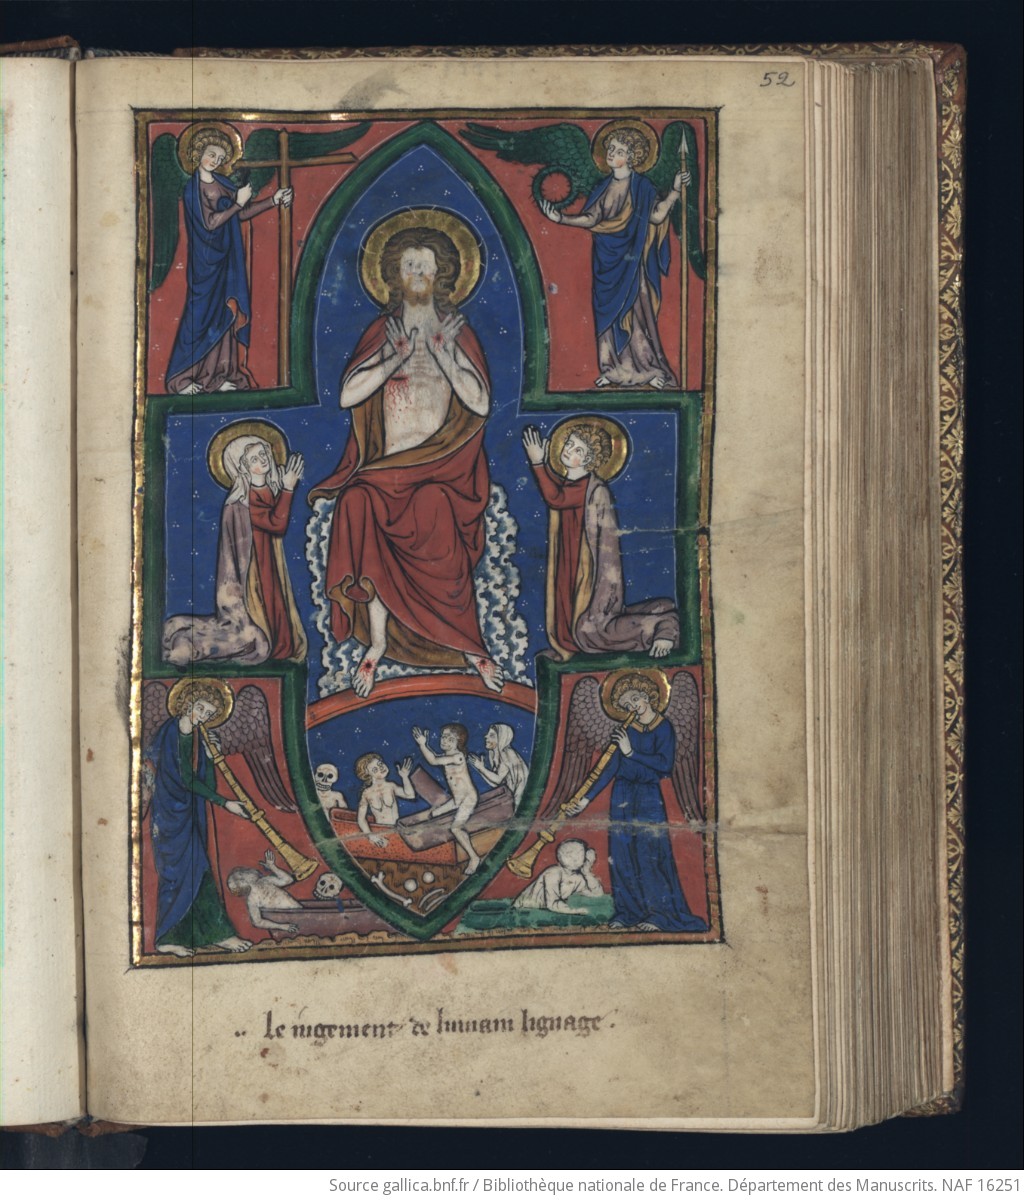 52
.. Le iugement de humain lignage .
Source gallica.bnf.fr / Bibliothèque nationale de France. Département des Manuscrits. NAF 16251